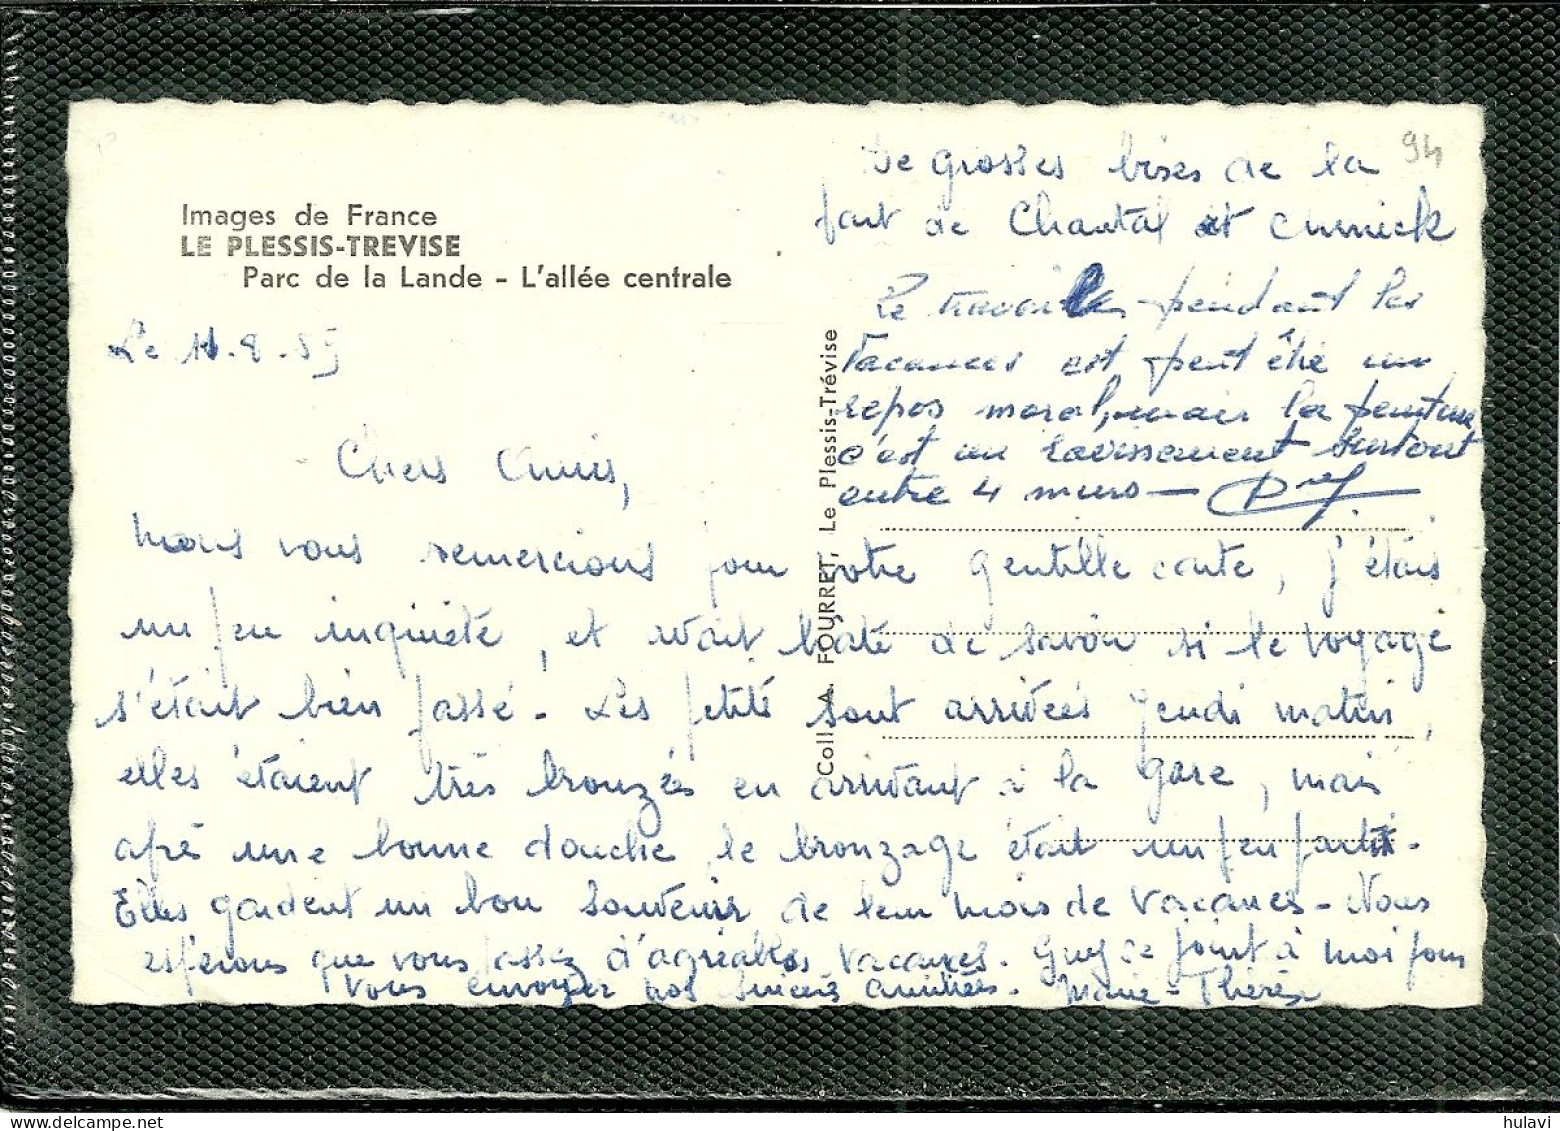 94
De grosses bises de la
part de Chantal et Annick
Images de France
LE PLESSIS-TREVISE
Parc de la Lande - L'allée centrale
Le 11.8.59
Le travail pendant les
vacances est peut être un
repos moral, mais la peinture
c'est un ravissement surtout
entre 4 murs —
Coll. A. FOURRET, Le Plessis-Trévise
Chers Amis,
Nous vous remercions pour votre gentille carte, j'étais
un peu inquiète, et avait hate de savoir si le voyage
s'était bien passé. Les petites sont arrivées jeudi matin,
elles étaient très bronzées en arrivant à la gare, mais
aprè une bonne douche, le bronzage était un peu parti.
Elles gardent un bon souvenir de leur mois de vacances. Nous
espérons que vous passez d'agréables vacances. Guy se joint à moi pour
vous envoyer nos sincères amitiés. Marie-Thérèse
hulavi